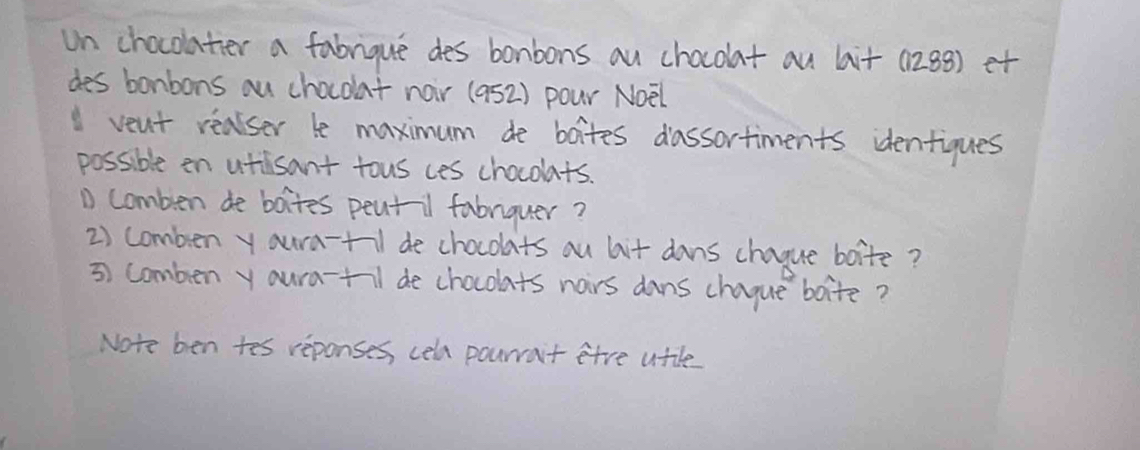 Un chocolatier a fabriqué des bonbons au chocolat au lait (1288) et
des bonbons au chocolat noir (952) pour Noël
Il veut réaliser le maximum de boîtes d'assortiments identiques
possible en utilisant tous ces chocolats.
1) Combien de boîtes peut-il fabriquer ?
2) Combien y aura-t-il de chocolats au lait dans chaque boîte ?
3) Combien y aura-t-il de chocolats noirs dans chaque boîte ?
Note bien tes réponses, cela pourrait être utile